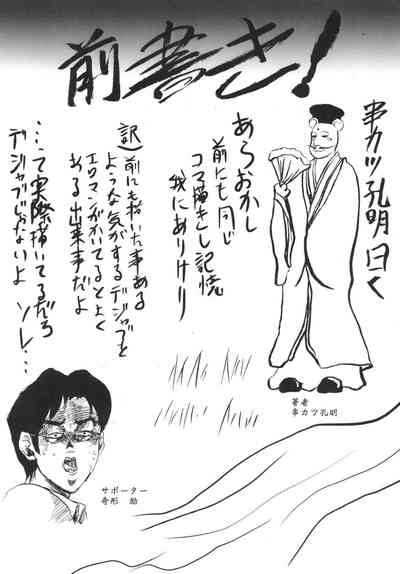 前書き!
串カツ孔明曰く
あらおかし
前にも同じ
コマ描きし記憶
我にありけり
訳)前にも書いた事ある
ような気がするデジャブと
エロマンガかいてるとよく
ある出来事だよ
…って実際描いてるだろ
デジャブじゃないよ ソレ…
著者
串カツ孔明
サポーター
奇形 励